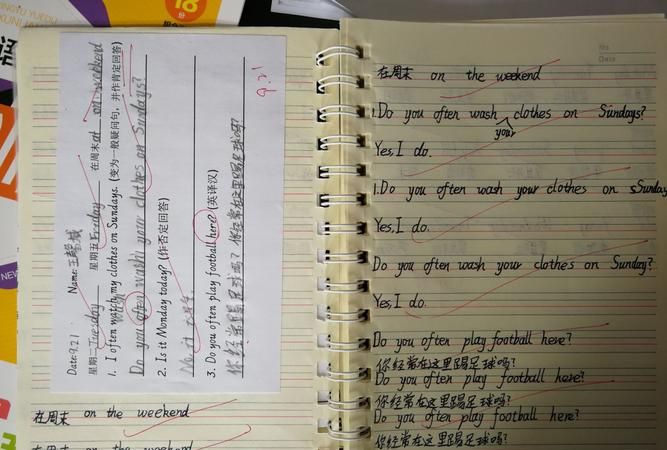 Date 9.21 Name:
星期二 Tuesday 星期五 Freday 在周末 at on weekend
1. I often watch my clothes on Sundays. (变为一般疑问句，并作肯定回答)
wash
Do you often wash your clothes on Sundays?
2. Is it Monday today? (作否定回答)
No, it
3. Do you often play football here? (英译汉)
你经常在这里踢足球吗？你经常在这里踢足球吗？
9.21
在周末 on the weekend
在周末 on the weekend
No.
Date
在周末 on the weekend
1.Do you often wash clothes on Sundays?
your
Yes, I do.
1.Do you often wash your clothes on sSunday
Yes, I do.
Do you often wash your clothes on Sunday?
Yes, I do.
Do you often play football here?
你经常在这里踢足球吗？
Do you often play football here?
你经常在这里踢足球吗？
Do you often play football here?
你经常在这里踢足球吗？
18
NEW